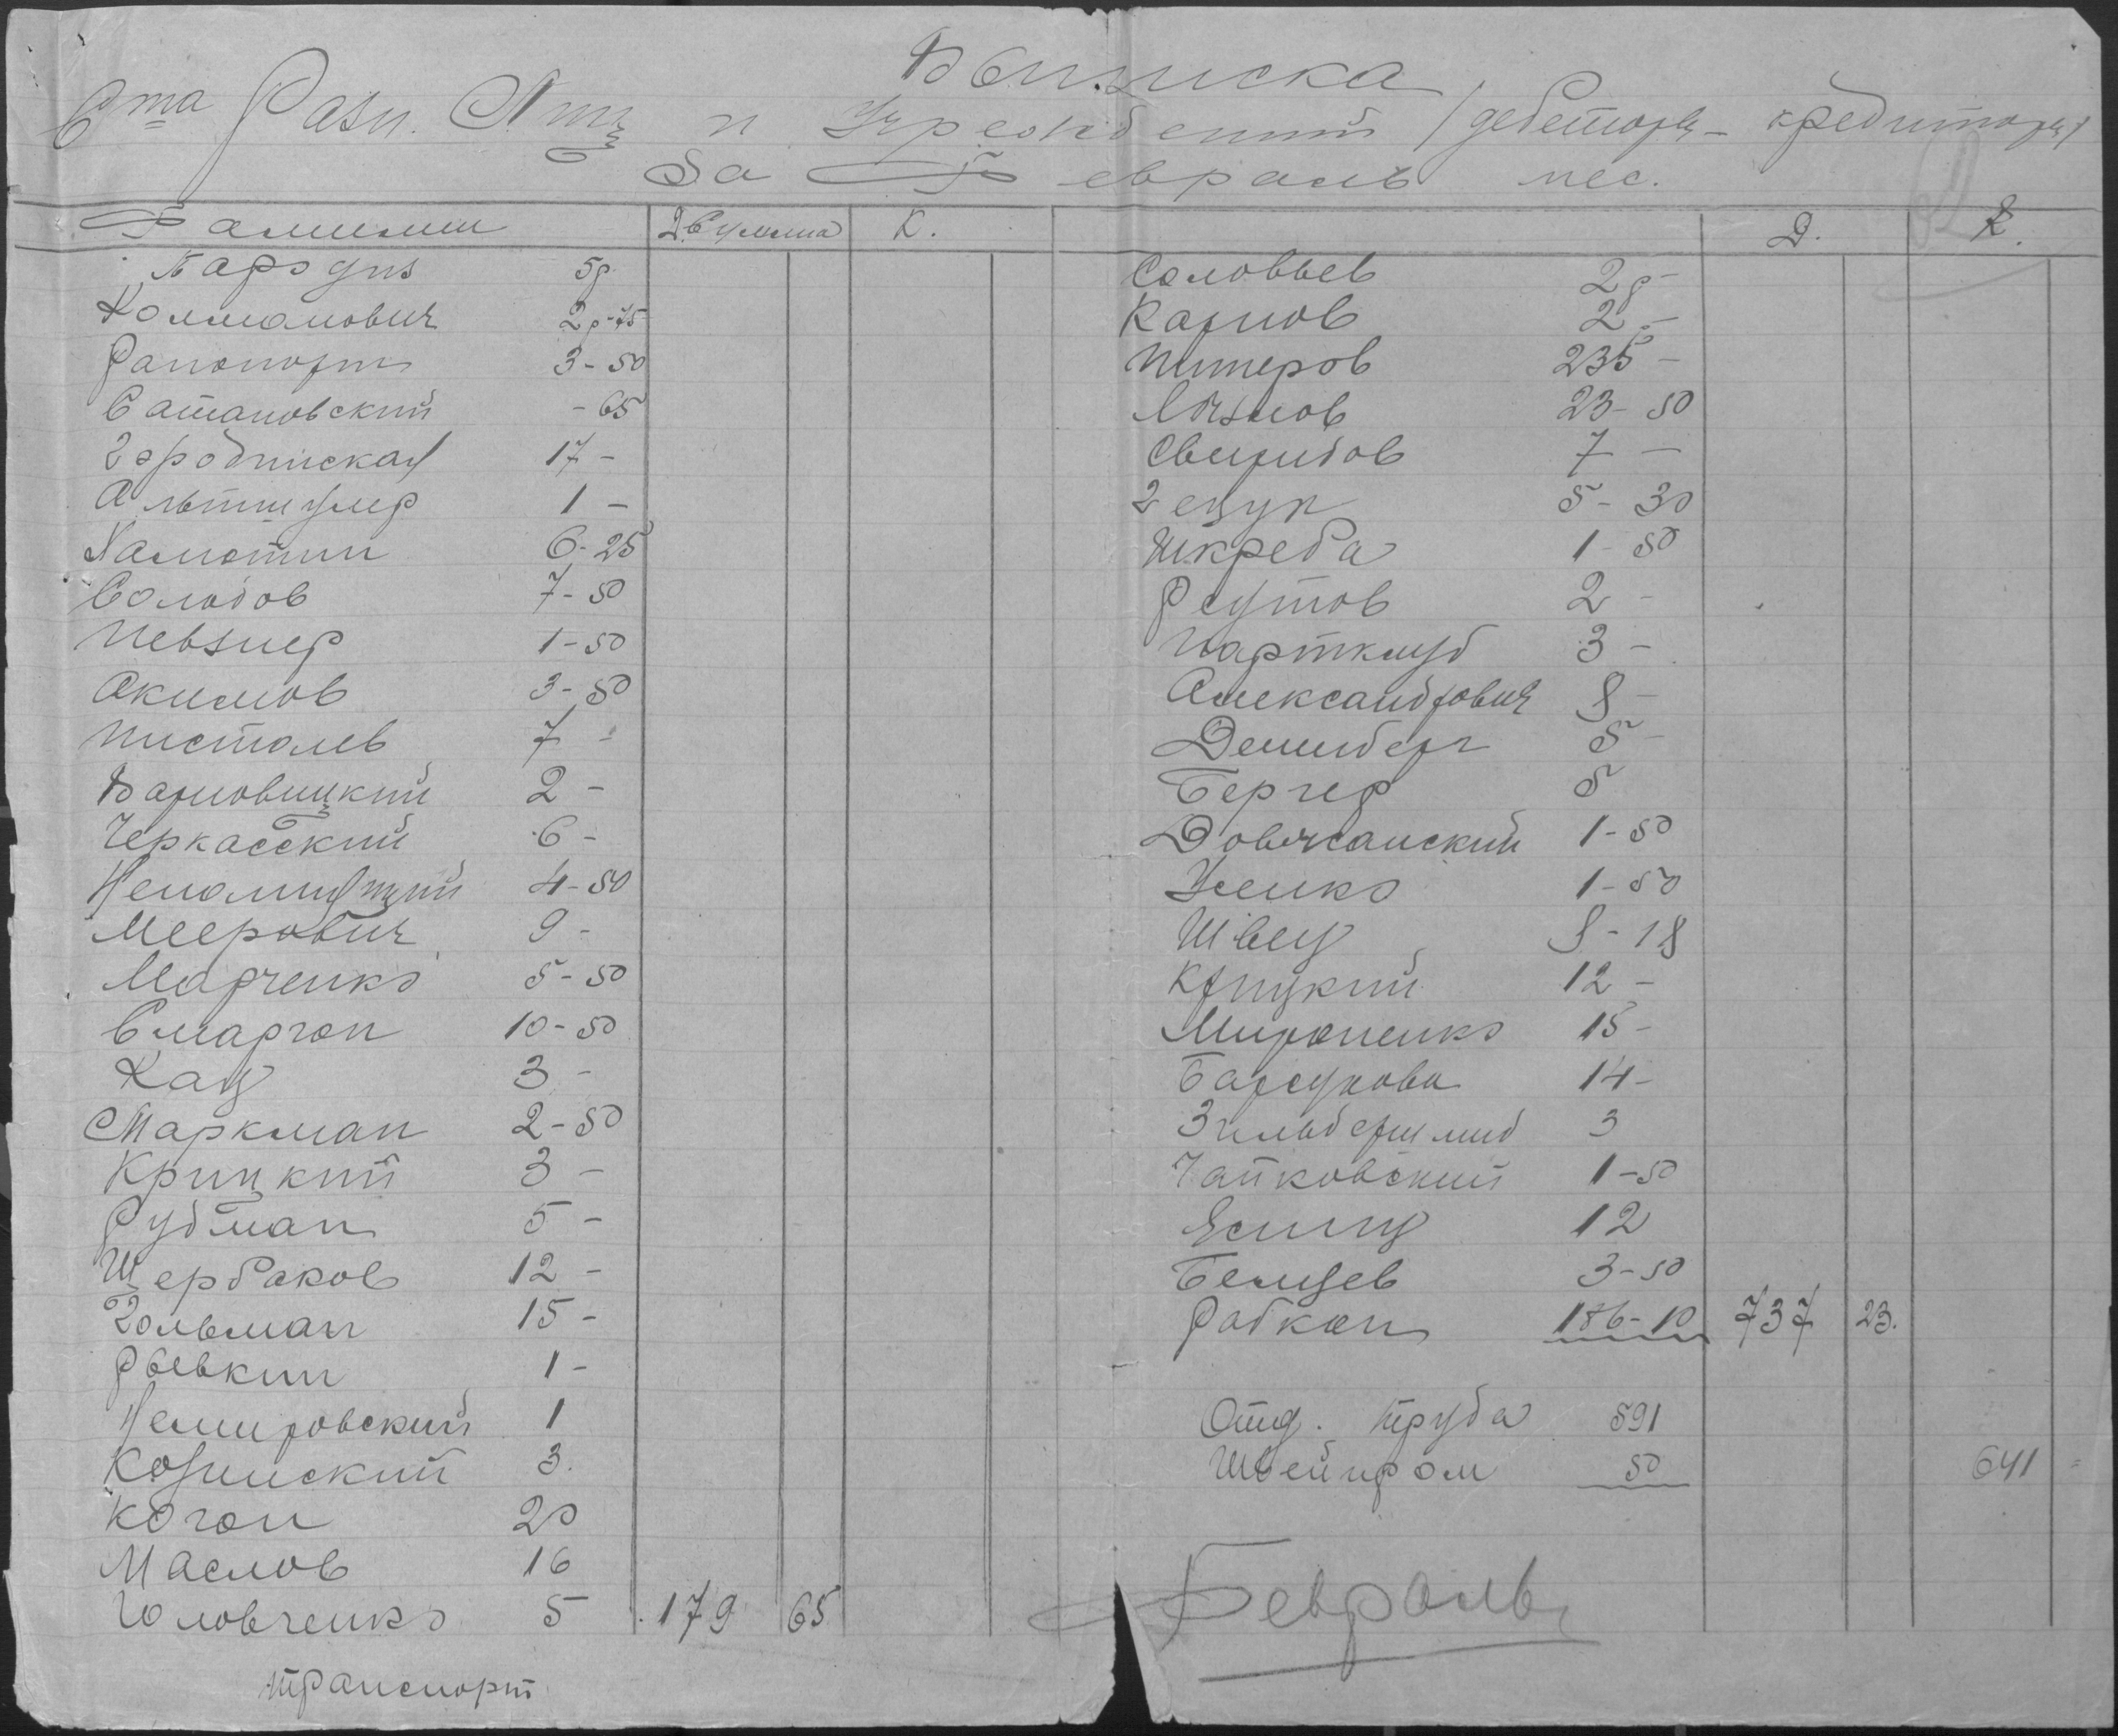 Выписка
Счта Разн. Лиц и Учреждений /дебеторы - кредиторы/
За Февраль мес.
Фамилии Д. Сумма К.
5р
Колманович 2р-75
Рапопорт 3-50
Сатановский -65
Городинская 17-
Альтшулер 1-
Хамотин 6-25
Солодов 7-50
Певзнер 1-50
Акимов 3-50
Пистолев 7-
Варновицкий 2-
Черкасский 6-
Непомнящий 4-50
Меерович 9-
Марченко 5-50
Сморгон 10-50
Кац 3-
Маркман 2-50
Крицкий 3-
Рудман 5-
Щербаков 12-
Гольман 15-
Рывкин 1-
Немировский 1
Козинский 3.
Коган 20
Маслов 16
Головченко 5 179 65
транспорт
Д. К.
Соловьев 2р-
Карпов 2р-
Питеров 235-
23-50
Свиридов 7-
Гецук 5-30
Шкреба 1-50
Реутов 2-
Партклуб 3-
Александрович 8-
Демиберг 5-
Бергер 5
Довжанский 1-50
Уженко 1-50
Швец 8-18
Крицкий 12-
Мироненко 15-
Барсукова 14-
Зильбершмид 3
Чайковский 1-50
Ясинц 12
Бельцев 3-50
Рабкоп 186-10 737 23.
Отд. труда 591
Швейпром 50 641=
Февраль